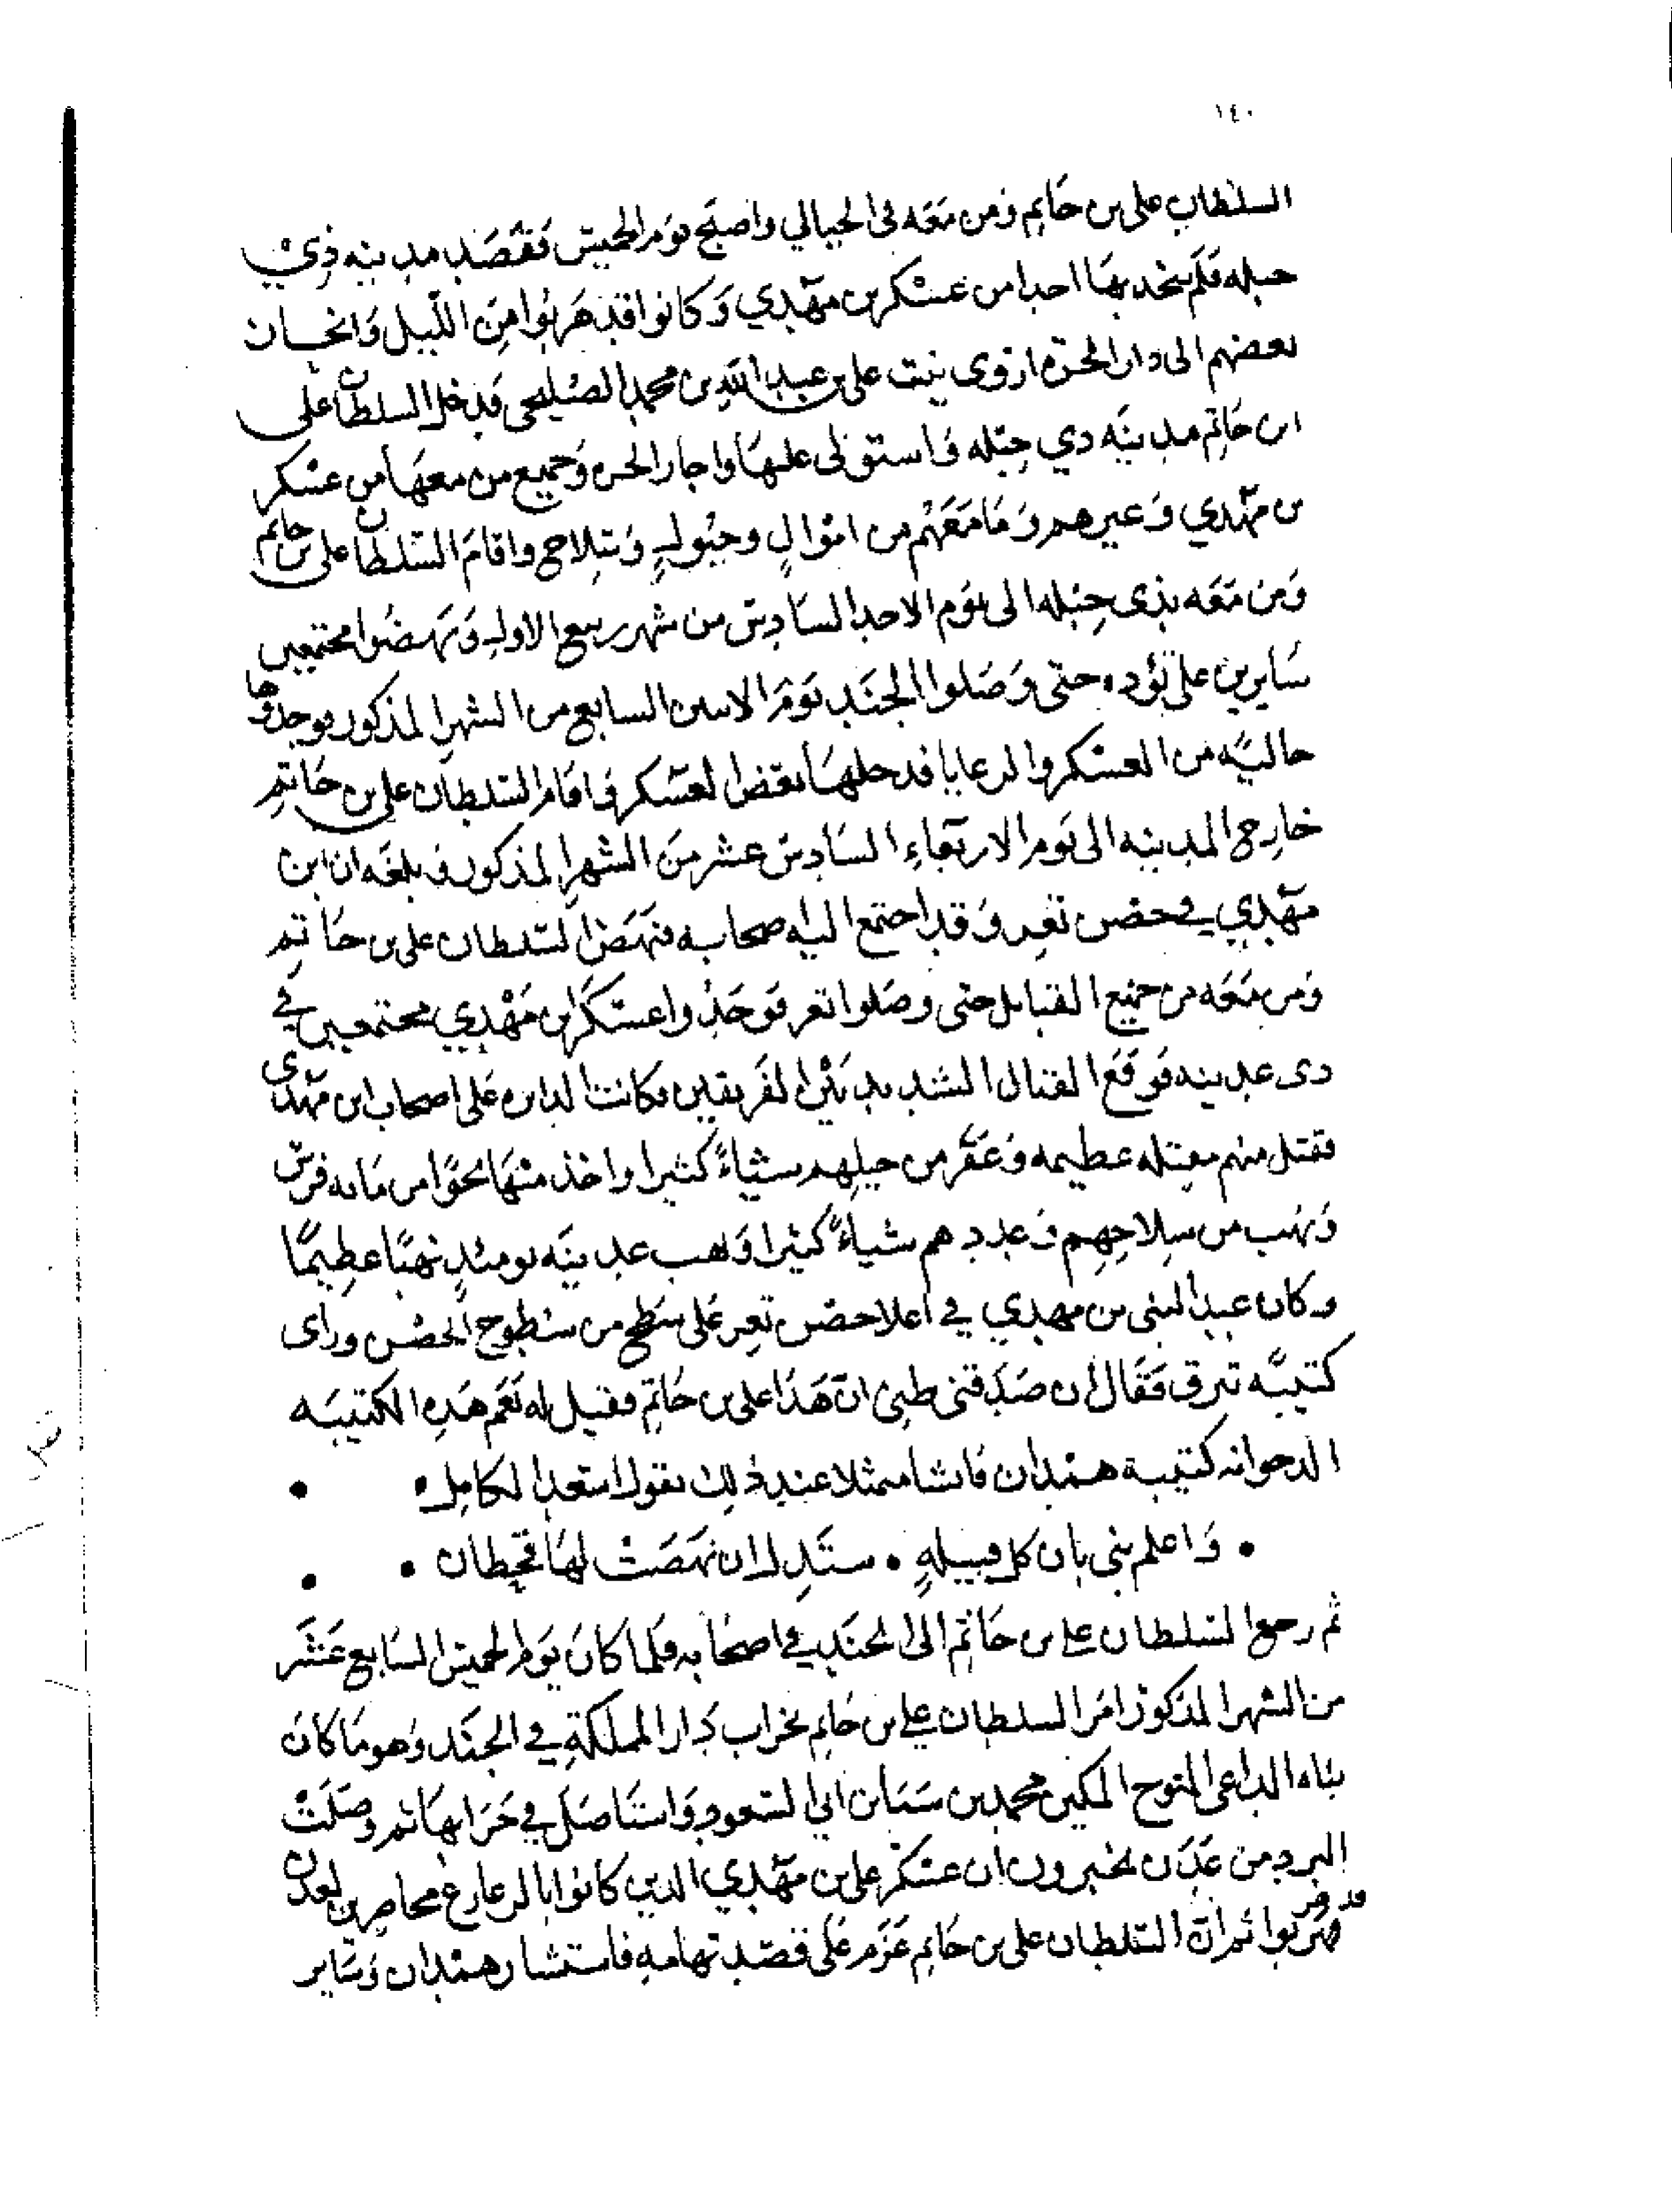 ١٤٠
السلطان علي بن حاتم ومن معه في الجبالي واصبح يوم الخميس فقصد مدينه ذي
جبله فلم يجد بها احدا من عسكر بن مهدي وكانوا قد هربوا من الليل وانحاز
بعضهم الى دار الحرة اروى بنت علي بن عبد الله بن محمد الصليحي فدخل السلطان علي
ابن حاتم مدينه ذي جبله فاستولى عليها واجار الحره وجميع من معها من عسكر
بن مهدي وغيرهم وما معهم من اموال وخيول وسلاح واقام السلطان علي بن حاتم
ومن معه بذي جبله الى يوم الاحد السادس من شهر ربيع الاول ونهضوا مجتمعين
سايرين على تؤده حتى وصلوا الجند يوم الاثنين السابع من الشهر المذكور فوجدوها
خاليه من العسكر والرعايا فدخلها بعض العسكر فاقام السلطان علي بن حاتم
خارج المدينه الى يوم الاربعاء السادس عشر من الشهر المذكور فبلغه ان ابن
مهدي في حصن تعز وقد اجتمع اليه اصحابه فنهض السلطان علي بن حاتم
ومن معه من جميع القبايل حتى وصلوا تعز فوجدوا عسكر ابن مهدي مجتمعين في
ذي عدينه فوقع القتال الشديد بين الفريقين فكانت الدايره على اصحاب ابن مهدي
فقتل منهم مقتله عظيمه وعقر من خيلهم شياءً كثيرا واخذ منها نحوًا من مايه فرس
ونهب من سلاحهم وعددهم شياءً كثيرا ونهب عدينه يومئذٍ نهبًا عظيمًا
وكان عبد النبي بن مهدي في اعلا حصن تعز على سطح من سطوح الحصن وراى
كتيبه تبرق فقال ان صدقني ظني ان هذا علي بن حاتم فقيل له نعم هذه الكتيبه
كتيبة همدان فانشا متمثلا عند ذلك بقول اسعد الكامل
• واعلم بني بان كل قبيلهٍ • ستذل ان نهضت لها قحطان •
ثم رجع السلطان علي بن حاتم الى الجند في اصحابه فلما كان يوم الخميس السابع عشر
من الشهر المذكور امر السلطان علي بن حاتم بخراب دار المملكة في الجند وهو ما كان
بناه الداعي المتوج المكين محمد بن سبا بن ابي السعود واستاصل في خرابها ثم وصلت
البرد من عدن يخبرون ان عسكر علي بن مهدي الذين كانوا بالرعارع محاصرين لعدن
قد هربوا ثم ان السلطان علي بن حاتم عزم على قصد تهامه فاستشار همدان وساير